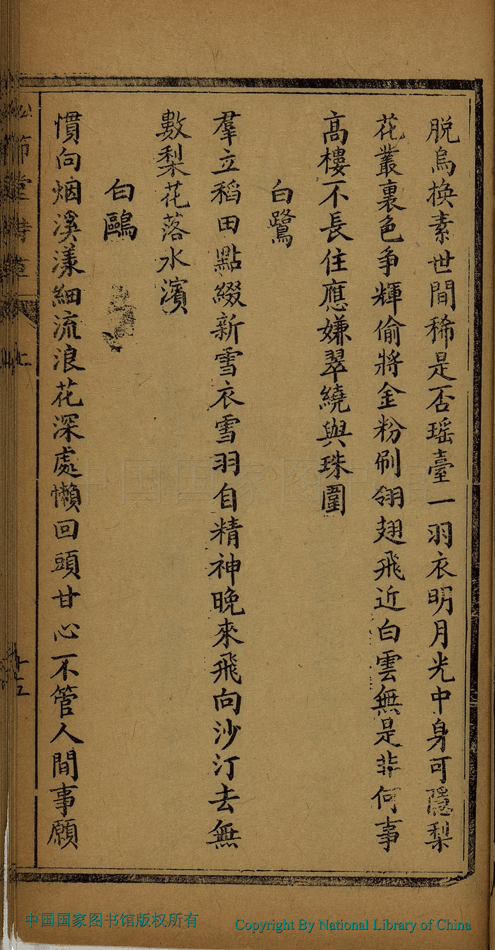 脱烏換素世間稀是否瑶臺一羽衣明月光中身可隱梨
花叢裏色争輝偷將金粉刷翎翅飛近白雲無是非何事
高樓不長住應嫌翠繞與珠圍
白鷺
羣立稻田點綴新雪衣雪羽自精神晚來飛向沙汀去無
數梨花落水濱
白鷗
慣向烟溪漾細流浪花深處懶回頭甘心不管人間事願
節堂詩草
上
十五
中国国家图书馆版权所有
Copyright By National Library of China